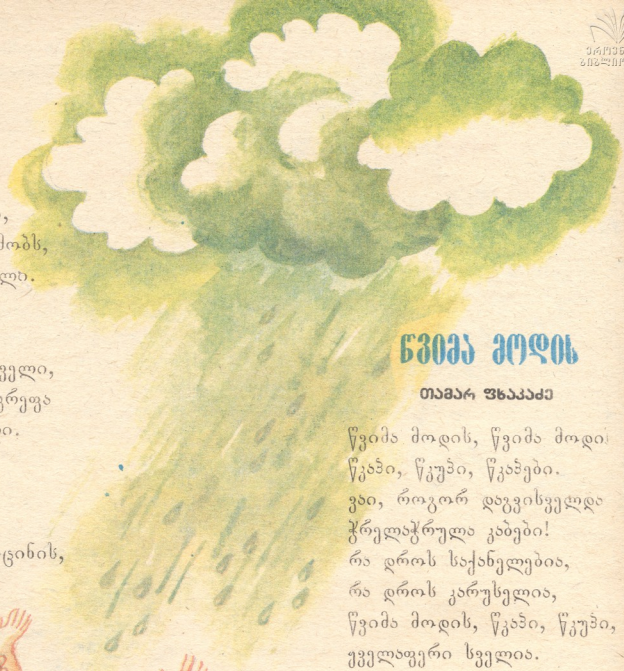 ეროვნ
ბიბლიო
მობს,
ველი,
ცინის,
წვიმა მოდის
თამარ ფხაკაძე
წვიმა მოდის, წვიმა მოდი
წკაპი, წკუპი, წკაპები.
ვაი, როგორ დაგვისველდა
ჭრელაჭრულა კაბები!
რა დროს საქანელებია,
რა დროს კარუსელია,
წვიმა მოდის, წკაპი, წკუპი,
ყველაფერი სველია.